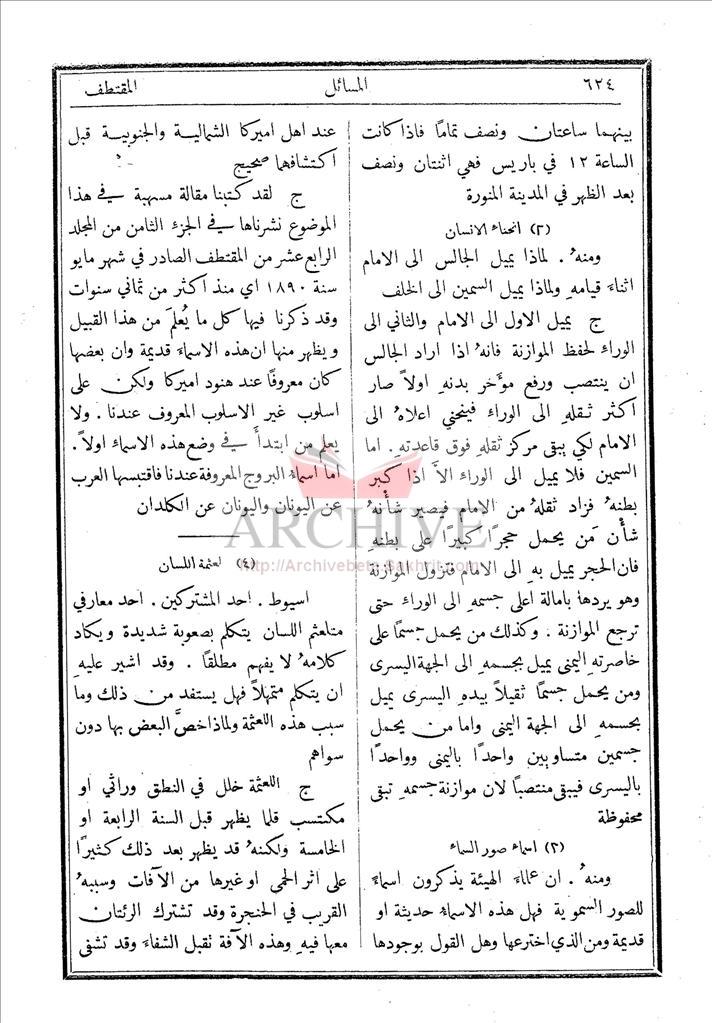 ٦٢٤
المسائل
المقتطف
بينهما ساعتان ونصف تمامًا فاذا كانت
الساعة ١٢ في باريس فهي اثنتان ونصف
بعد الظهر في المدينة المنورة
(٢) انحناء الانسان
ومنهُ . لماذا يميل الجالس الى الامام
اثناءَ قيامهِ ولماذا يميل السمين الى الخلف
ج يميل الاول الى الامام والثاني الى
الوراء لحفظ الموازنة فانهُ اذا اراد الجالس
ان ينتصب ورفع مؤَخر بدنهِ اولاً صار
اكثر ثقلهِ الى الوراء فينحني اعلاهُ الى
الامام لكي يبقى مركز ثقلهِ فوق قاعدتهِ . اما
السمين فلا يميل الى الوراء الاَّ اذا كبر
بطنهُ فزاد ثقلهُ من الامام فيصير شأنهُ
شأن مَن يحمل حجرًا كبيرًا على بطنهِ
فان الحجر يميل بهِ الى الامام فتزول الموازنة
وهو يردها بامالة اعلى جسمهِ الى الوراء حتى
ترجع الموازنة . وكذلك من يحمل جسمًا على
خاصرتهِ اليمنى يميل بجسمهِ الى الجهة اليسرى
ومن يحمل جسمًا ثقيلاً بيدهِ اليسرى يميل
بجسمهِ الى الجهة اليمنى واما من يحمل
جسمين متساويين واحدًا باليمنى وواحدًا
باليسرى فيبقى منتصبًا لان موازنة جسمهِ تبقى
محفوظة
(٣) اسماء صور السماء
ومنهُ . ان علماءَ الهيئة يذكرون اسماءً
للصور السموية فهل هذه الاسماء حديثة او
قديمة ومن الذي اخترعها وهل القول بوجودها
عند اهل اميركا الشمالية والجنوبية قبل
اكتشافها صحيح
ج لقد كتبنا مقالة مسهبة في هذا
الموضوع نشرناها في الجزء الثامن من المجلد
الرابع عشر من المقتطف الصادر في شهر مايو
سنة ١٨٩٠ اي منذ اكثر من ثماني سنوات
وقد ذكرنا فيها كل ما يُعلَم من هذا القبيل
ويظهر منها ان هذه الاسماء قديمة وان بعضها
كان معروفًا عند هنود اميركا ولكن على
اسلوب غير الاسلوب المعروف عندنا . ولا
يعلم من ابتدأَ في وضع هذه الاسماء اولاً .
اما اسماء البروج المعروفة عندنا فاقتبسها العرب
عن اليونان واليونان عن الكلدان
(٤) لعثمة اللسان
اسيوط . احد المشتركين . احد معارفي
متلعثم اللسان يتكلم بصعوبة شديدة ويكاد
كلامهُ لا يفهم مطلقًا . وقد اشير عليهِ
ان يتكلم متمهلاً فهل يستفد من ذلك وما
سبب هذه اللعثمة ولماذا خصَّ البعض بها دون
سواهم
ج اللعثمة خلل في النطق وراثي او
مكتسب قلما يظهر قبل السنة الرابعة او
الخامسة ولكنهُ قد يظهر بعد ذلك كثيرًا
على اثر الحمى او غيرها من الآفات وسببهُ
القريب في الحنجرة وقد تشترك الرئتان
معها فيهِ وهذه الآفة تقبل الشفاءَ وقد تشفى
ARCHIVE
http://Archivebeta.Sakhrit.com